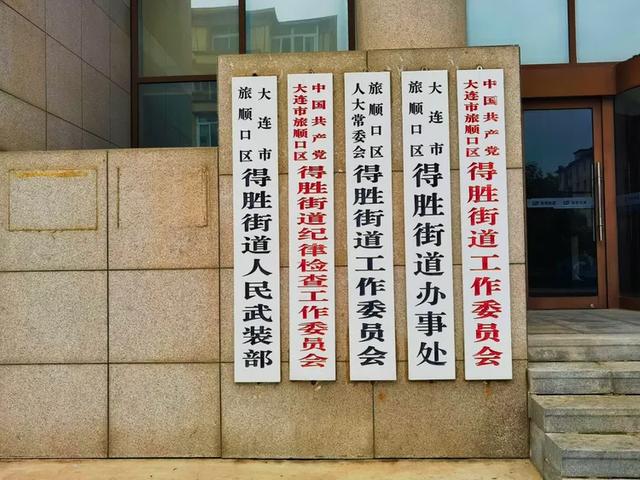 大连市
旅顺口区
得胜街道人民武装部
中国共产党
大连市旅顺口区
得胜街道纪律检查工作委员会
旅顺口区
人大常委会
得胜街道工作委员会
大连市
旅顺口区
得胜街道办事处
中国共产党
大连市旅顺口区
得胜街道工作委员会